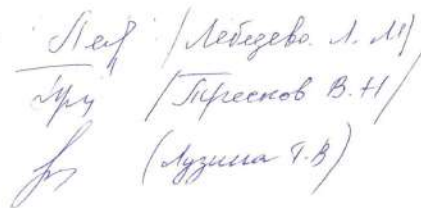 Леб /Лебедева Л.М/
Тру /Тресков В.Н/
(Лузина Т.В)